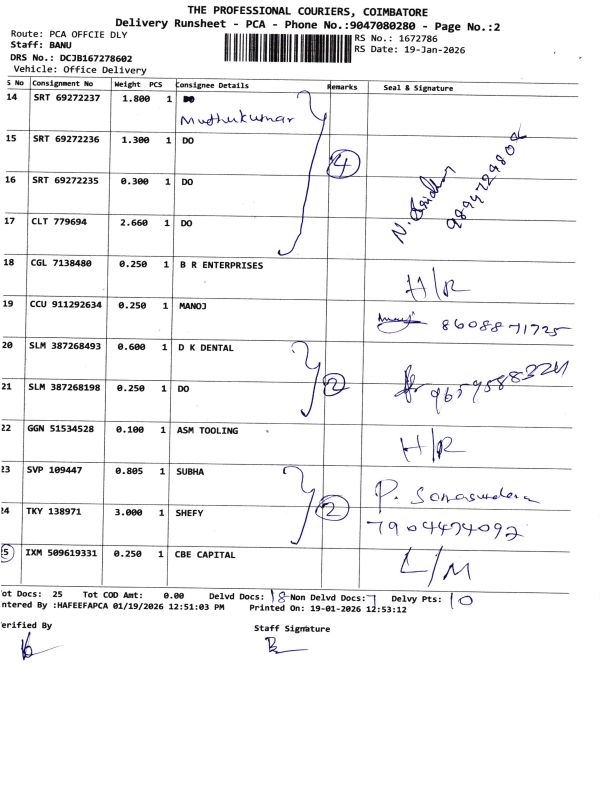 THE PROFESSIONAL COURIERS, COIMBATORE
Delivery Runsheet - PCA - Phone No.:9047080280 - Page No.:2
Route: PCA OFFCIE DLY
RS No.: 1672786
Staff: BANU
RS Date: 19-Jan-2026
DRS No.: DCJB167278602
Vehicle: Office Delivery
S No Consignment No Weight PCS Consignee Details Remarks Seal & Signature
14 SRT 69272237 1.800 1 DO
Muthukumar
15 SRT 69272236 1.300 1 DO
4
16 SRT 69272235 0.300 1 DO
9894729802
17 CLT 779694 2.660 1 DO
18 CGL 7138480 0.250 1 B R ENTERPRISES
H/R
19 CCU 911292634 0.250 1 MANOJ
8608871725
20 SLM 387268493 0.600 1 D K DENTAL
21 SLM 387268198 0.250 1 DO 2
22 GGN 51534528 0.100 1 ASM TOOLING
H/R
23 SVP 109447 0.805 1 SUBHA
24 TKY 138971 3.000 1 SHEFY 2
7904474092
25 IXM 509619331 0.250 1 CBE CAPITAL
L/M
ot Docs: 25 Tot COD Amt: 0.00 Delvd Docs: 18 Non Delvd Docs: 7 Delvy Pts: 10
ntered By :HAFEEFAPCA 01/19/2026 12:51:03 PM Printed On: 19-01-2026 12:53:12
erified By
Staff Signature